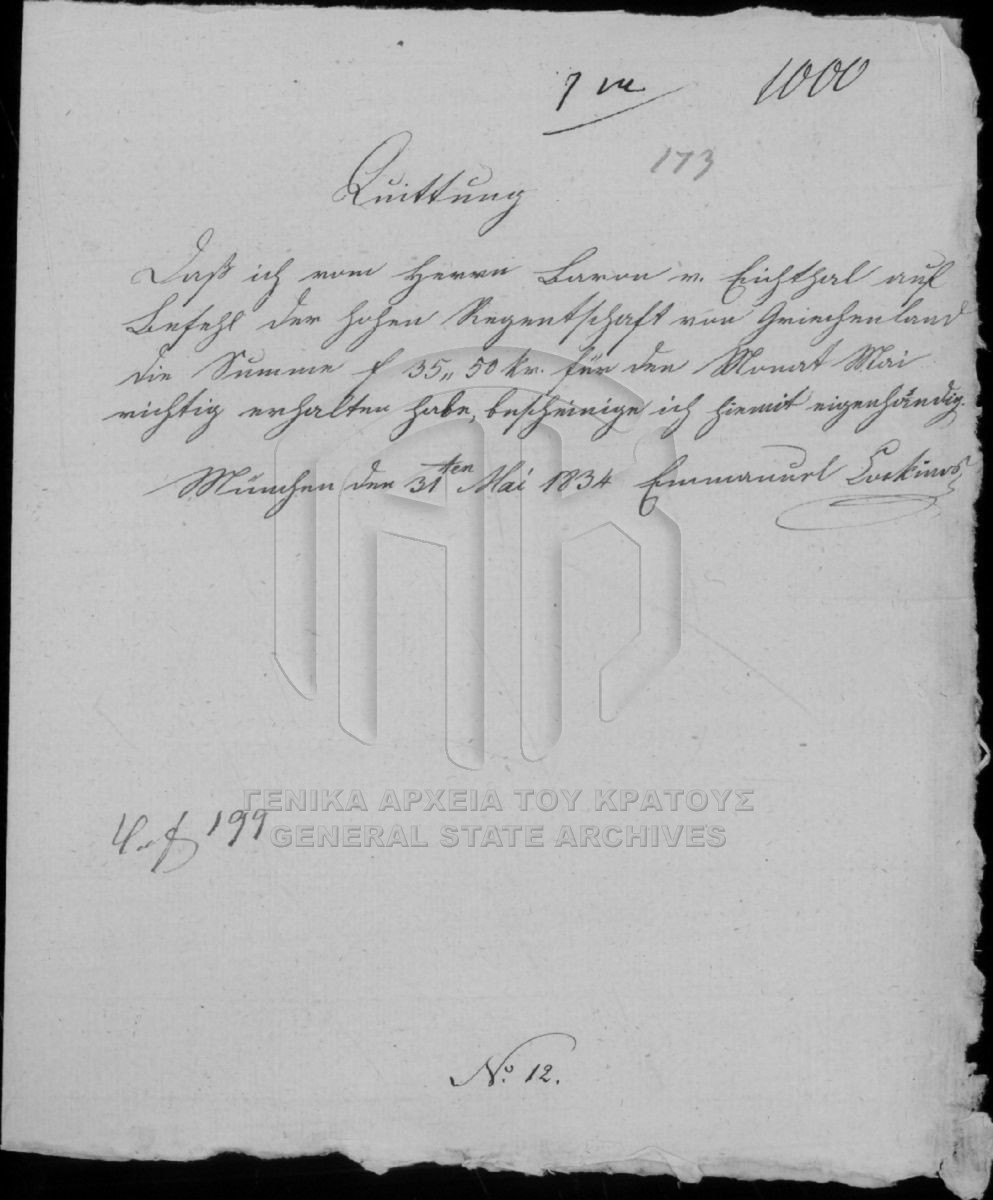 1000
173
Quittung
Daß ich vom Herrn Baron v. Eichthal auf
Befehl der hohen Regentschaft von Griechenland
die Summe f 35,, 50 kr. für den Monat Mai
richtig erhalten habe, bescheinige ich hiemit eigenhändig.
München den 31ten Mai 1834 Emmanuel
ΓΕΝΙΚΑ ΑΡΧΕΙΑ ΤΟΥ ΚΡΑΤΟΥΣ
199
GENERAL STATE ARCHIVES
No. 12.